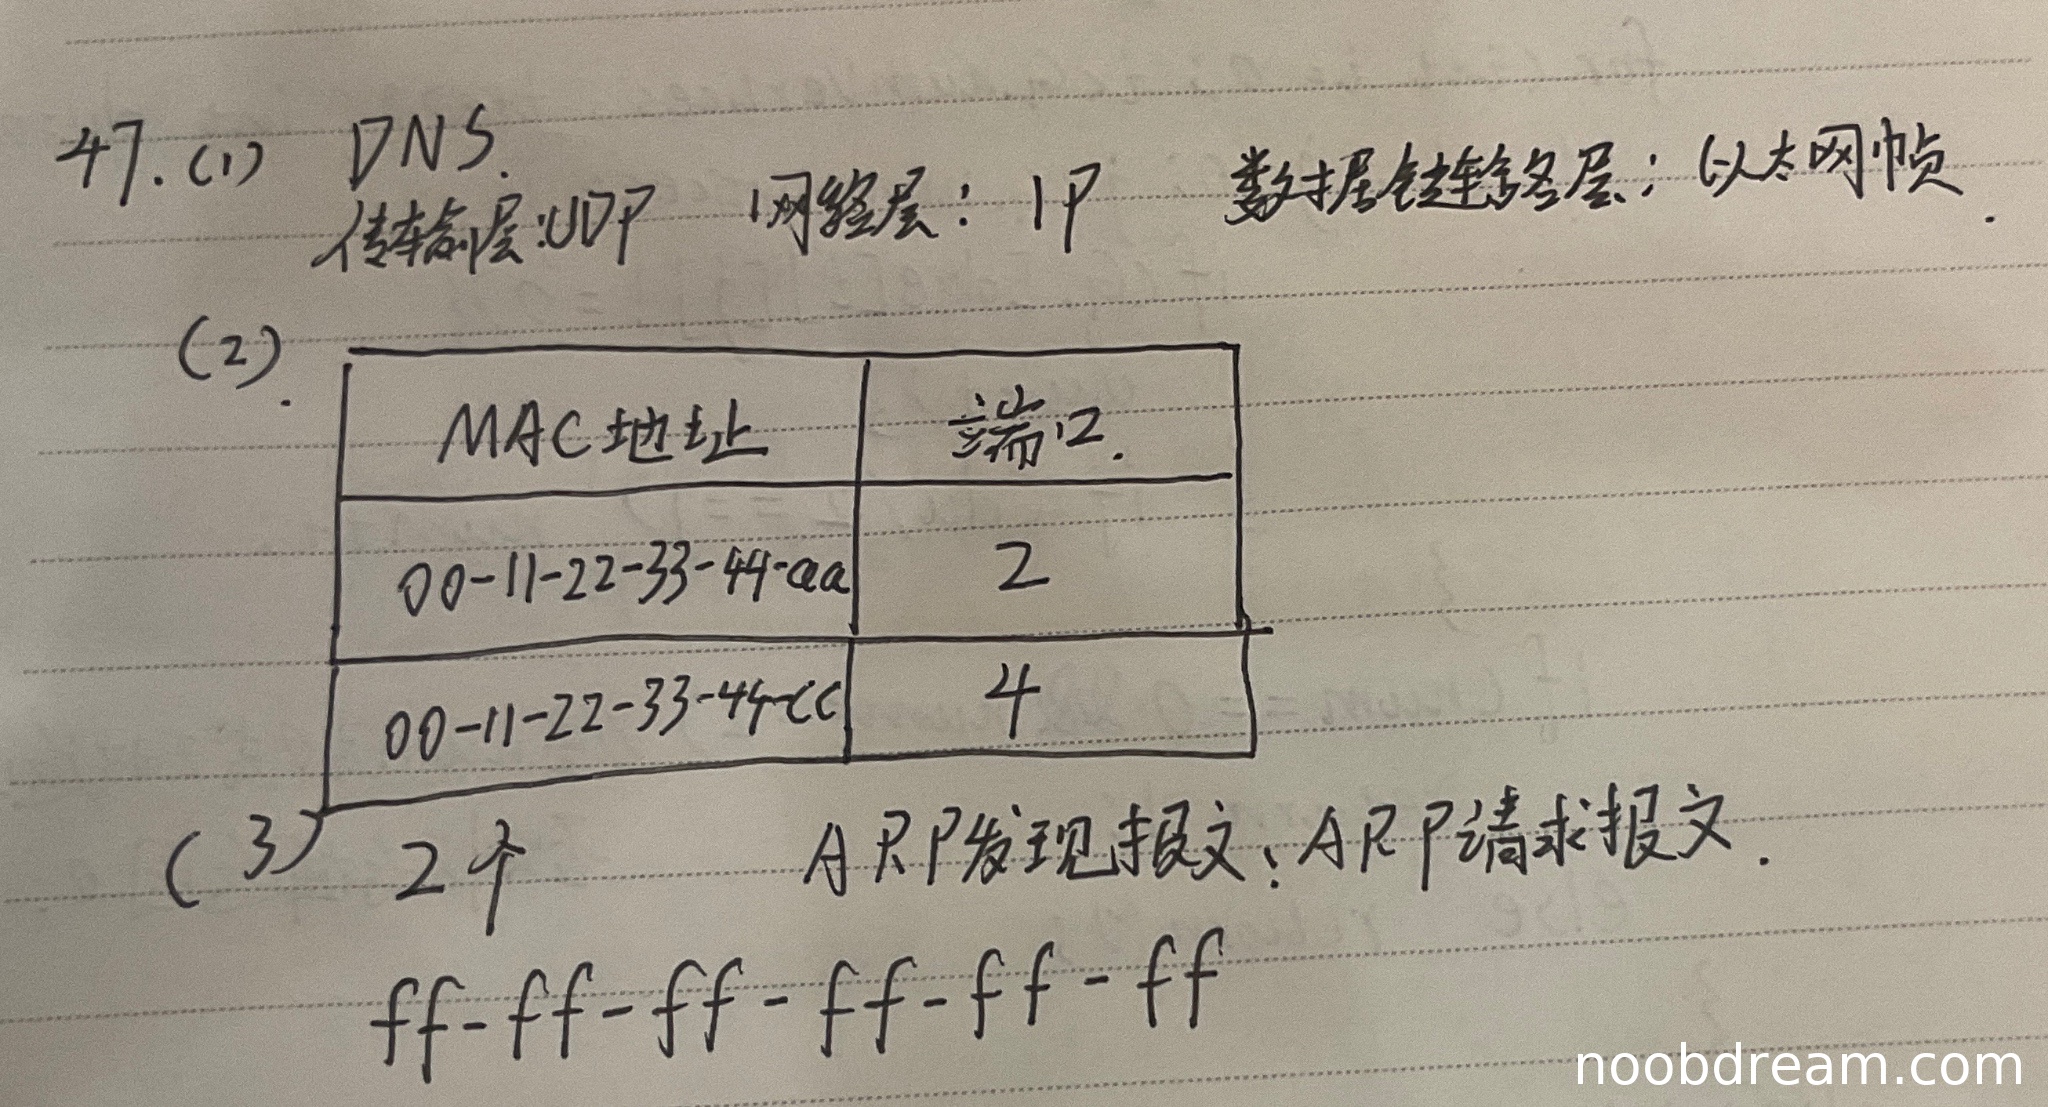 47.(1) DNS.
传输层:UDP 网络层:IP 数据链路层:以太网帧.
(2).
MAC地址 端口.
00-11-22-33-44-aa 2
00-11-22-33-44-cc 4
(3) 2个 ARP发现报文、ARP请求报文.
ff-ff-ff-ff-ff-ff
noobdream.com